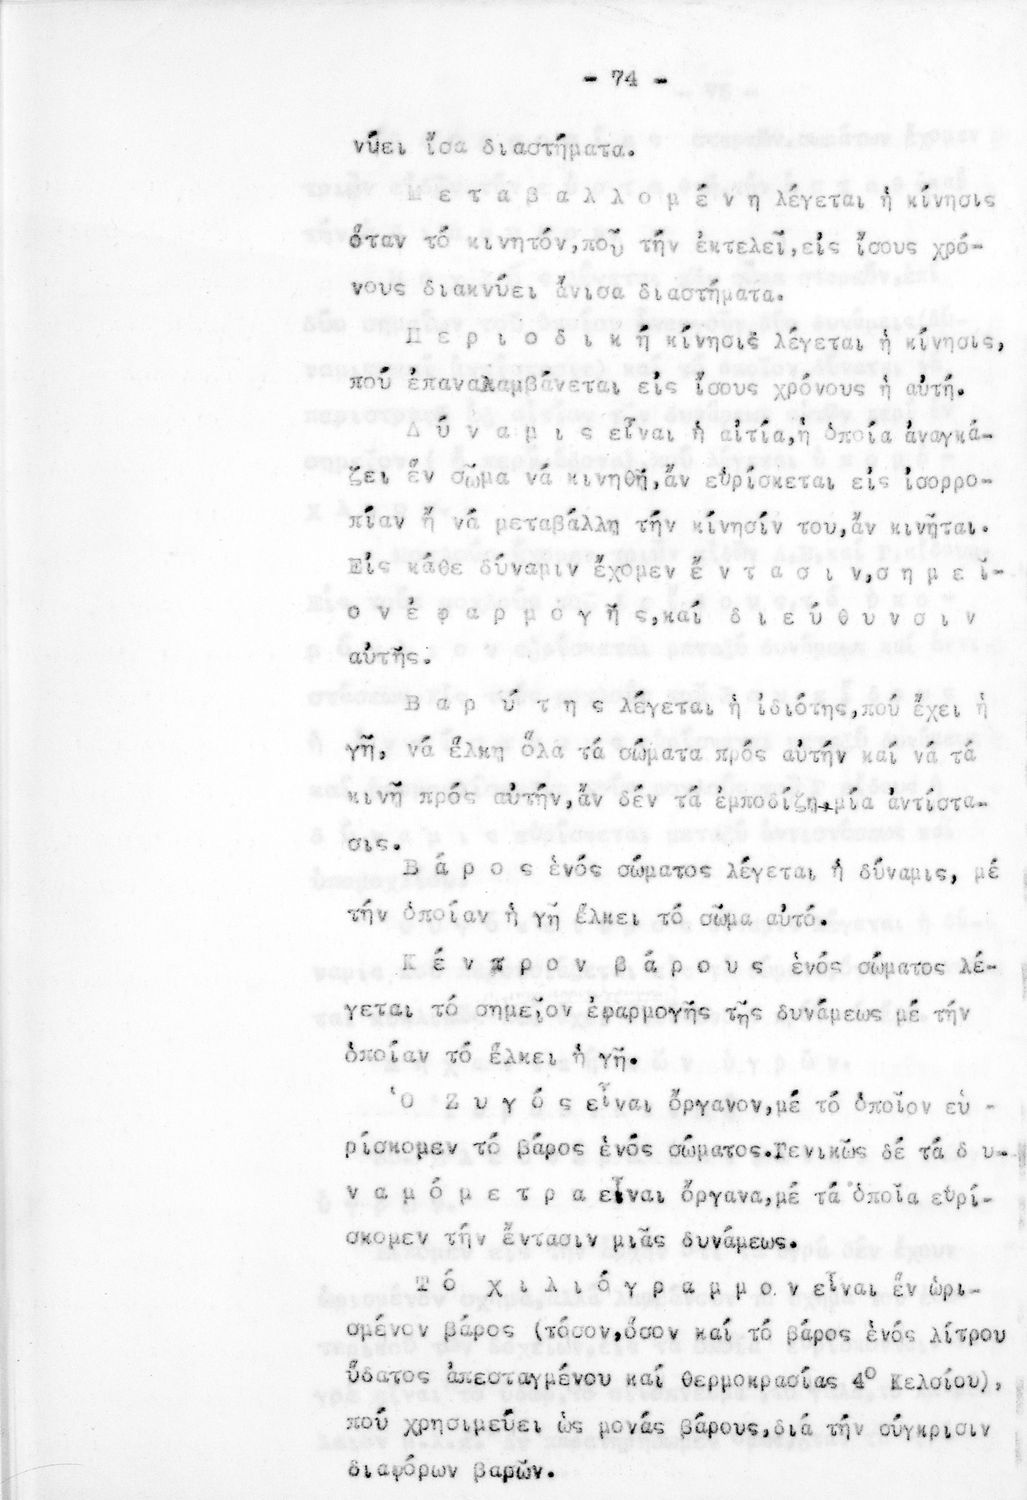 - 74 -
νύει ἴσα διαστήματα.
Μ ε τ α β α λ λ ο μ έ ν η λέγεται ἡ κίνησις
ὅταν τό κινητόν,ποῦ τήν ἐκτελεῖ,εἰς ἴσους χρό-
νους διακνύει ἄνισα διαστήματα.
Π ε ρ ι ο δ ι κ ή κίνησις λέγεται ἡ κίνησις,
πού ἐπαναλαμβάνεται εἰς ἴσους χρόνους ἡ αὐτή.
Δ ύ ν α μ ι ς εἶναι ἡ αἰτία,ἡ ὁποία ἀναγκά-
ζει ἕν σῶμα νά κινηθῇ,ἄν εὑρίσκεται εἰς ἰσορρο-
πίαν ἤ νά μεταβάλλῃ τήν κίνησίν του,ἄν κινῆται.
Εἰς κάθε δύναμιν ἔχομεν ἔ ν τ α σ ι ν,σ η μ ε ῖ -
ο ν ἐ φ α ρ μ ο γ ῆ ς,καί δ ι ε ύ θ υ ν σ ι ν
αὐτῆς.
Β α ρ ύ τ η ς λέγεται ἡ ἰδιότης,πού ἔχει ἡ
γῆ, νά ἕλκῃ ὅλα τά σώματα πρός αὐτήν καί νά τά
κινῇ πρός αὐτήν,ἄν δέν τά ἐμποδίζῃ μία ἀντίστα-
σις.
Β ά ρ ο ς ἑνός σώματος λέγεται ἡ δύναμις, μέ
τήν ὁποίαν ἡ γῆ ἕλκει τό σῶμα αὐτό.
Κ έ ν τ ρ ο ν β ά ρ ο υ ς ἑνός σώματος λέ-
γεται τό σημεῖον ἐφαρμογῆς τῆς δυνάμεως μέ τήν
ὁποίαν τό ἕλκει ἡ γῆ.
Ὁ Ζ υ γ ό ς εἶναι ὄργανον,μέ τό ὁποῖον εὑ -
ρίσκομεν τό βάρος ἑνός σώματος.Γενικῶς δέ τά δ υ -
ν α μ ό μ ε τ ρ α εἶναι ὄργανα,μέ τά ὁποῖα εὑρί-
σκομεν τήν ἔντασιν μιᾶς δυνάμεως.
Τ ό χ ι λ ι ό γ ρ α μ μ ο ν εἶναι ἕν ὡρι-
σμένον βάρος (τόσον,ὅσον καί τό βάρος ἑνός λίτρου
ὕδατος ἀπεσταγμένου καί θερμοκρασίας 4⁰ Κελσίου),
πού χρησιμεύει ὡς μονάς βάρους,διά τήν σύγκρισιν
διαφόρων βαρῶν.